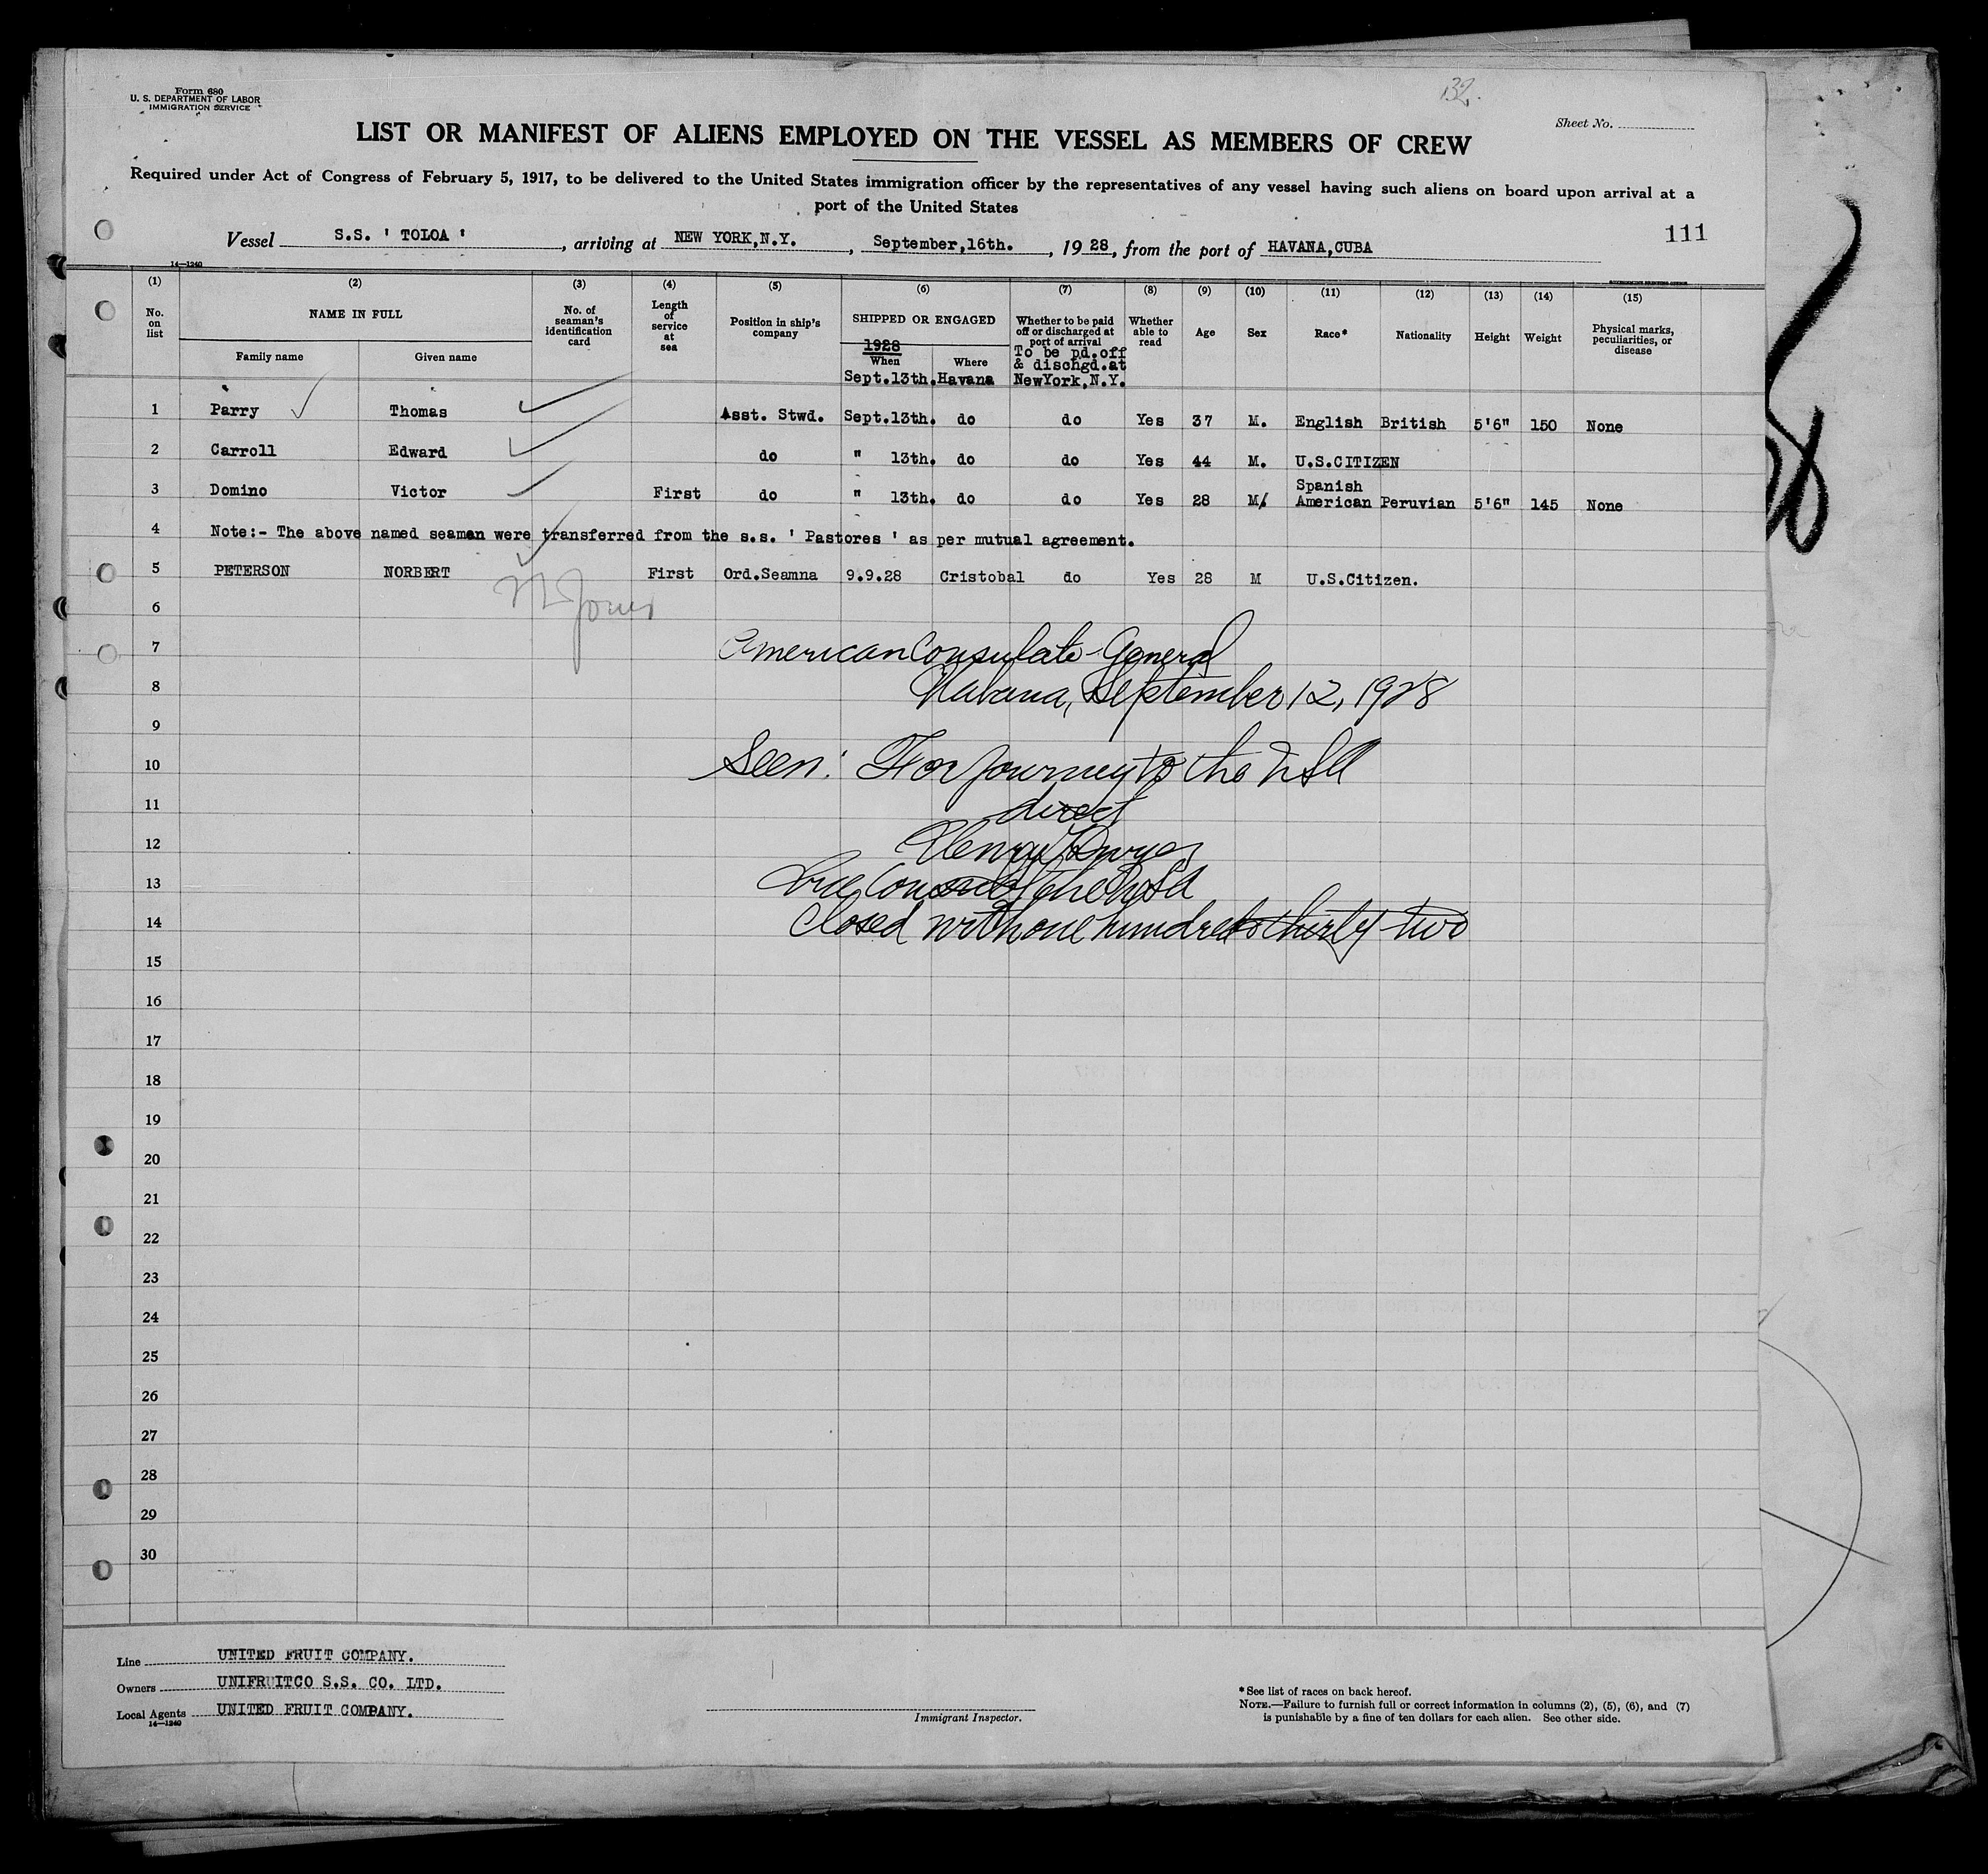 Form 680
U. S. DEPARTMENT OF LABOR
IMMIGRATION SERVICE
132.
Sheet No.
LIST OR MANIFEST OF ALIENS EMPLOYED ON THE VESSEL AS MEMBERS OF CREW
Required under Act of Congress of February 5, 1917, to be delivered to the United States immigration officer by the representatives of any vessel having such aliens on board upon arrival at a
port of the United States
Vessel S.S. ' TOLOA ' , arriving at NEW YORK,N.Y. , September,16th. , 1928, from the port of HAVANA,CUBA
111
14—1240
(1) (2) (3) (4) (5) (6) (7) (8) (9) (10) (11) (12) (13) (14) (15)
No. on list
NAME IN FULL
Family name Given name
No. of seaman's identification card
Length of service at sea
Position in ship's company
SHIPPED OR ENGAGED
1928
When Where
Whether to be paid off or discharged at port of arrival
Whether able to read
Age
Sex
Race*
Nationality
Height
Weight
Physical marks, peculiarities, or disease
Sept.13th. Havana To be pd.off & dischgd.at NewYork,N.Y.
1 Parry Thomas Asst. Stwd. Sept.13th. do do Yes 37 M. English British 5'6" 150 None
2 Carroll Edward do " 13th. do do Yes 44 M. U.S.CITIZEN
3 Domino Victor First do " 13th. do do Yes 28 M/ Spanish American Peruvian 5'6" 145 None
4 Note:- The above named seaman were transferred from the s.s. ' Pastores ' as per mutual agreement.
5 PETERSON NORBERT First Ord.Seamna 9.9.28 Cristobal do Yes 28 M U.S.Citizen.
6
7 American Consulate-General
8 Habana, September 12, 1928
9
10 Seen: For journey to the USA
11 direct
12 Henry Dwyer
13 Vice Consul of the USA
14 Closed with one hundred thirty two
15
16
17
18
19
20
21
22
23
24
25
26
27
28
29
30
Line UNITED FRUIT COMPANY.
Owners UNIFRUITCO S.S. CO. LTD.
Local Agents UNITED FRUIT COMPANY.
14—1240
Immigrant Inspector.
*See list of races on back hereof.
NOTE.—Failure to furnish full or correct information in columns (2), (5), (6), and (7)
is punishable by a fine of ten dollars for each alien. See other side.